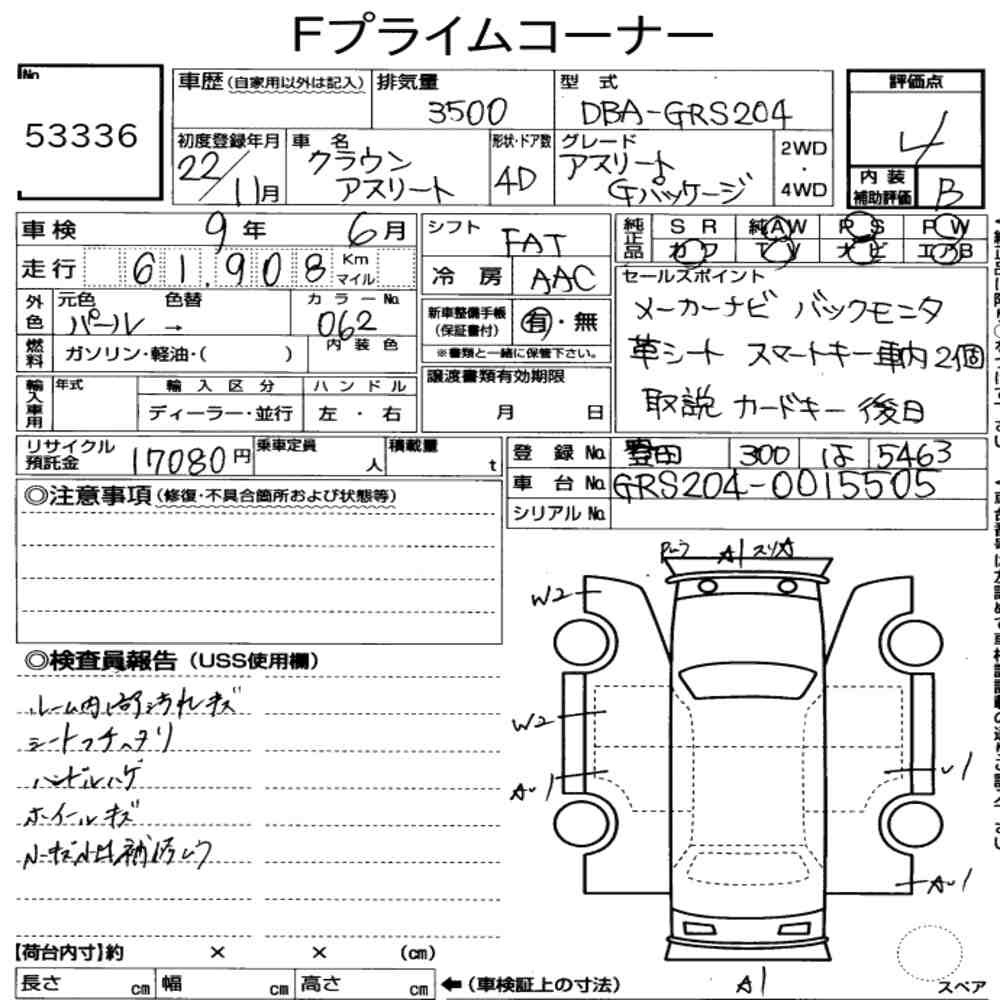 Fプライムコーナー
No.
53336
車歴(自家用以外は記入)
排気量
3500
型 式
DBA-GRS204
評価点
4
内装補助評価
B
初度登録年月
22/11月
車 名
クラウン
アスリート
形状・ドア数
4D
グレード
アスリート
Gパッケージ
2WD
・
4WD
車検 9年 6月
走行 61,908 Km
マイル
シフト FAT
冷 房 AAC
純正品
SR 純AW PS PW
カワ TV ナビ エアB
外色
元色 色替
パール→
カラーNo.
062
燃料
ガソリン・軽油・( )
内装色
新車整備手帳
(保証書付)
有・無
※書類と一緒に保管下さい。
セールスポイント
メーカーナビ バックモニタ
革シート スマートキー車内2個
取説 カードキー後日
輸入車用
年式
輸入区分
ハンドル
ディーラー・並行
左・右
譲渡書類有効期限
月 日
リサイクル
預託金
17080円
乗車定員
人
積載量
t
登 録 No. 豊田 300 は 5463
車 台 No. GRS204-0015505
シリアル No.
◎注意事項(修復・不具合箇所および状態等)
◎検査員報告(USS使用欄)
シートコゲヘタリ
ハンドルハゲ
ホイールキズ
A1
W2
W2
AU1
U1
AU1
A1
【荷台内寸】約 × × (cm)
長さ cm 幅 cm 高さ cm
←(車検証上の寸法)
スペア